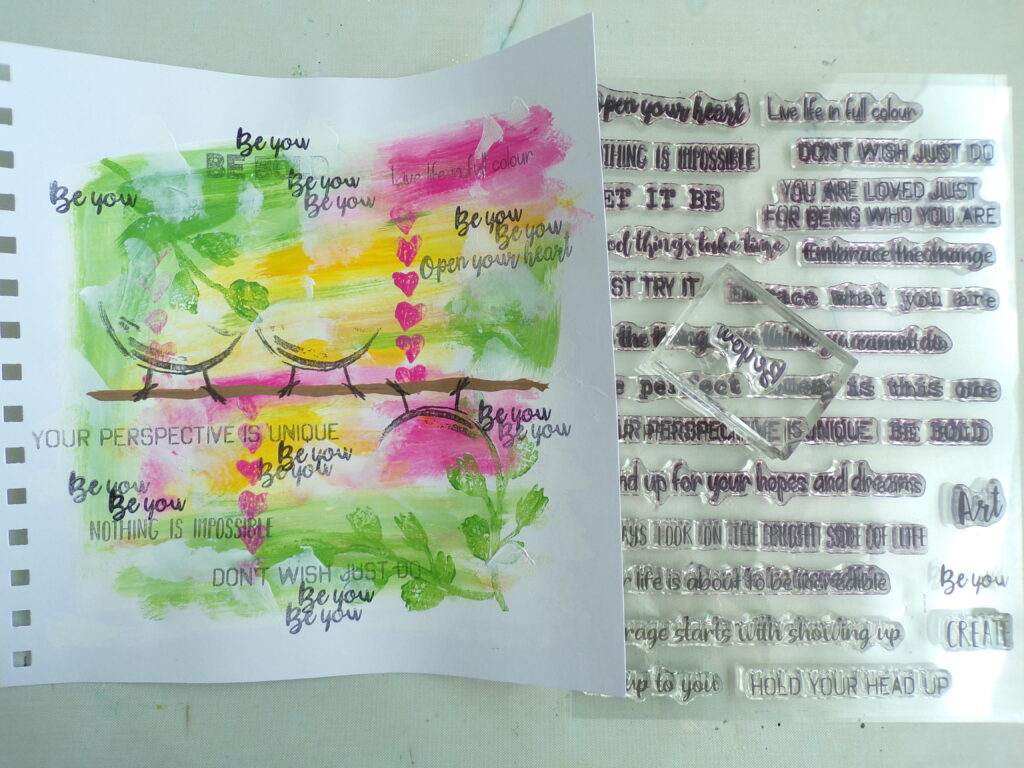 Be you
BE BOLD
Be you
Be you
Be you
Live life in full colour
Be you
Be you
Open your heart
Be you
Be you
YOUR PERSPECTIVE IS UNIQUE
Be you
Be you
Be you
Be you
NOTHING IS IMPOSSIBLE
DON'T WISH JUST DO
Be you
Be you
your heart
Live life in full colour
IS IMPOSSIBLE
DON'T WISH JUST DO
IT BE
YOU ARE LOVED JUST
FOR BEING WHO YOU ARE
things take time
Embrace the change
TRY IT
what you are
the thing you cannot do
Be you
perfect is this one
PERSPECTIVE IS UNIQUE
BE BOLD
up for your hopes and dreams
Art
LOOK ON THE BRIGHT SIDE OF LIFE
life is about to be incredible
Be you
starts with showing up
CREATE
up to you
HOLD YOUR HEAD UP